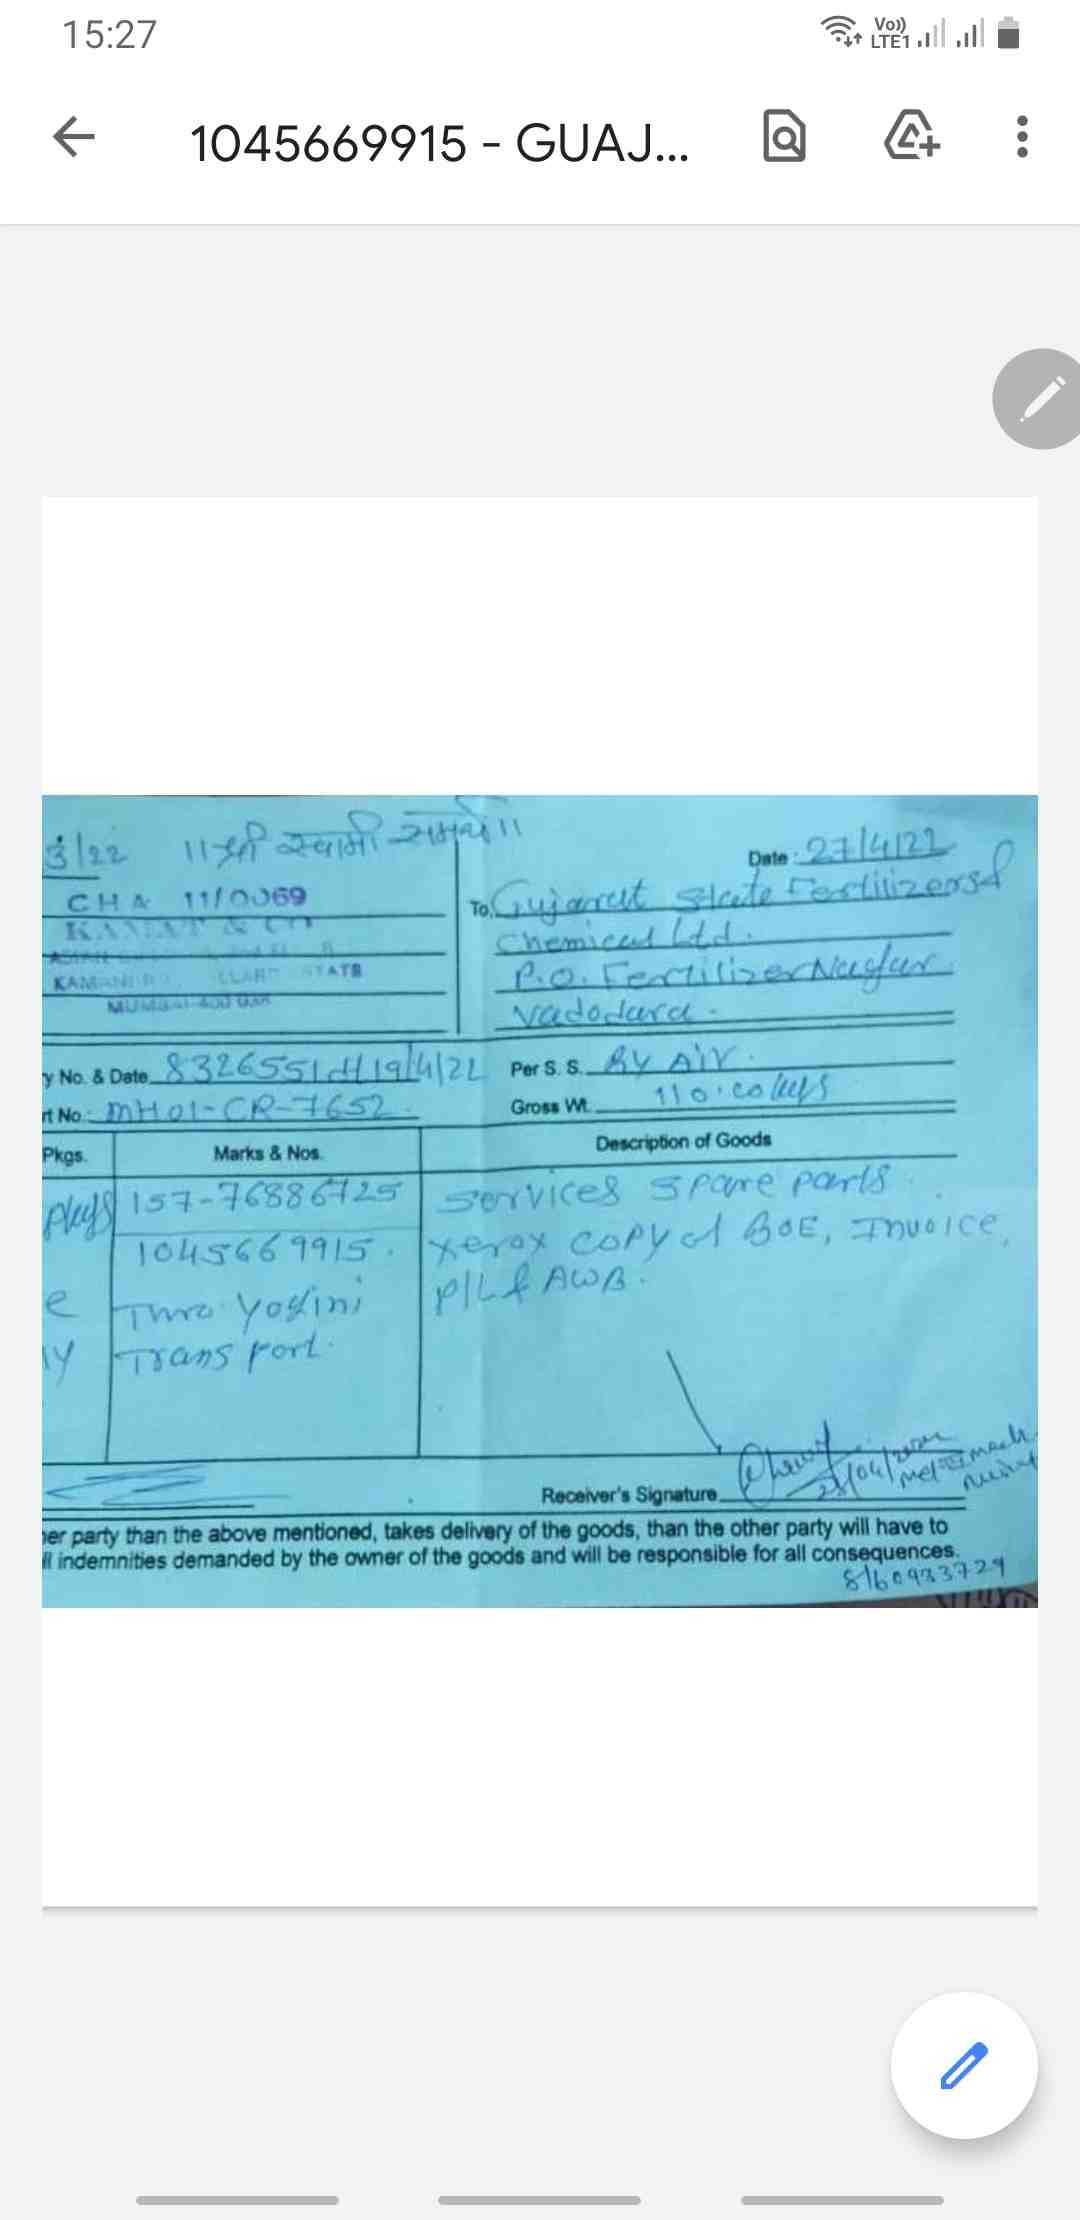 15:27
Vo)) LTE1
1045669915 - GUAJ...
3/22 ॥श्री स्वामी समर्थ॥
Date: 27/4/22
CHA 11/0069
KAMAT & CO
To, Gujarat State Fertilizers &
Chemical Ltd.
P.O. Fertilizer Nagar
Vadodara.
KAMANI
MUMBAI
y No. & Date 8326551 dt 19/4/22 Per S. S. By Air.
rt No: MH01-CR-7652. Gross Wt. 110.00 kgs
Pkgs. Marks & Nos. Description of Goods
pkgs 157-76886725 services spare parts.
1045669915. xerox copy of BOE, Invoice,
e Thro Yogini P/L & AWB.
ny Transport.
Receiver's Signature
her party than the above mentioned, takes delivery of the goods, than the other party will have to
ll indemnities demanded by the owner of the goods and will be responsible for all consequences.
8160933729